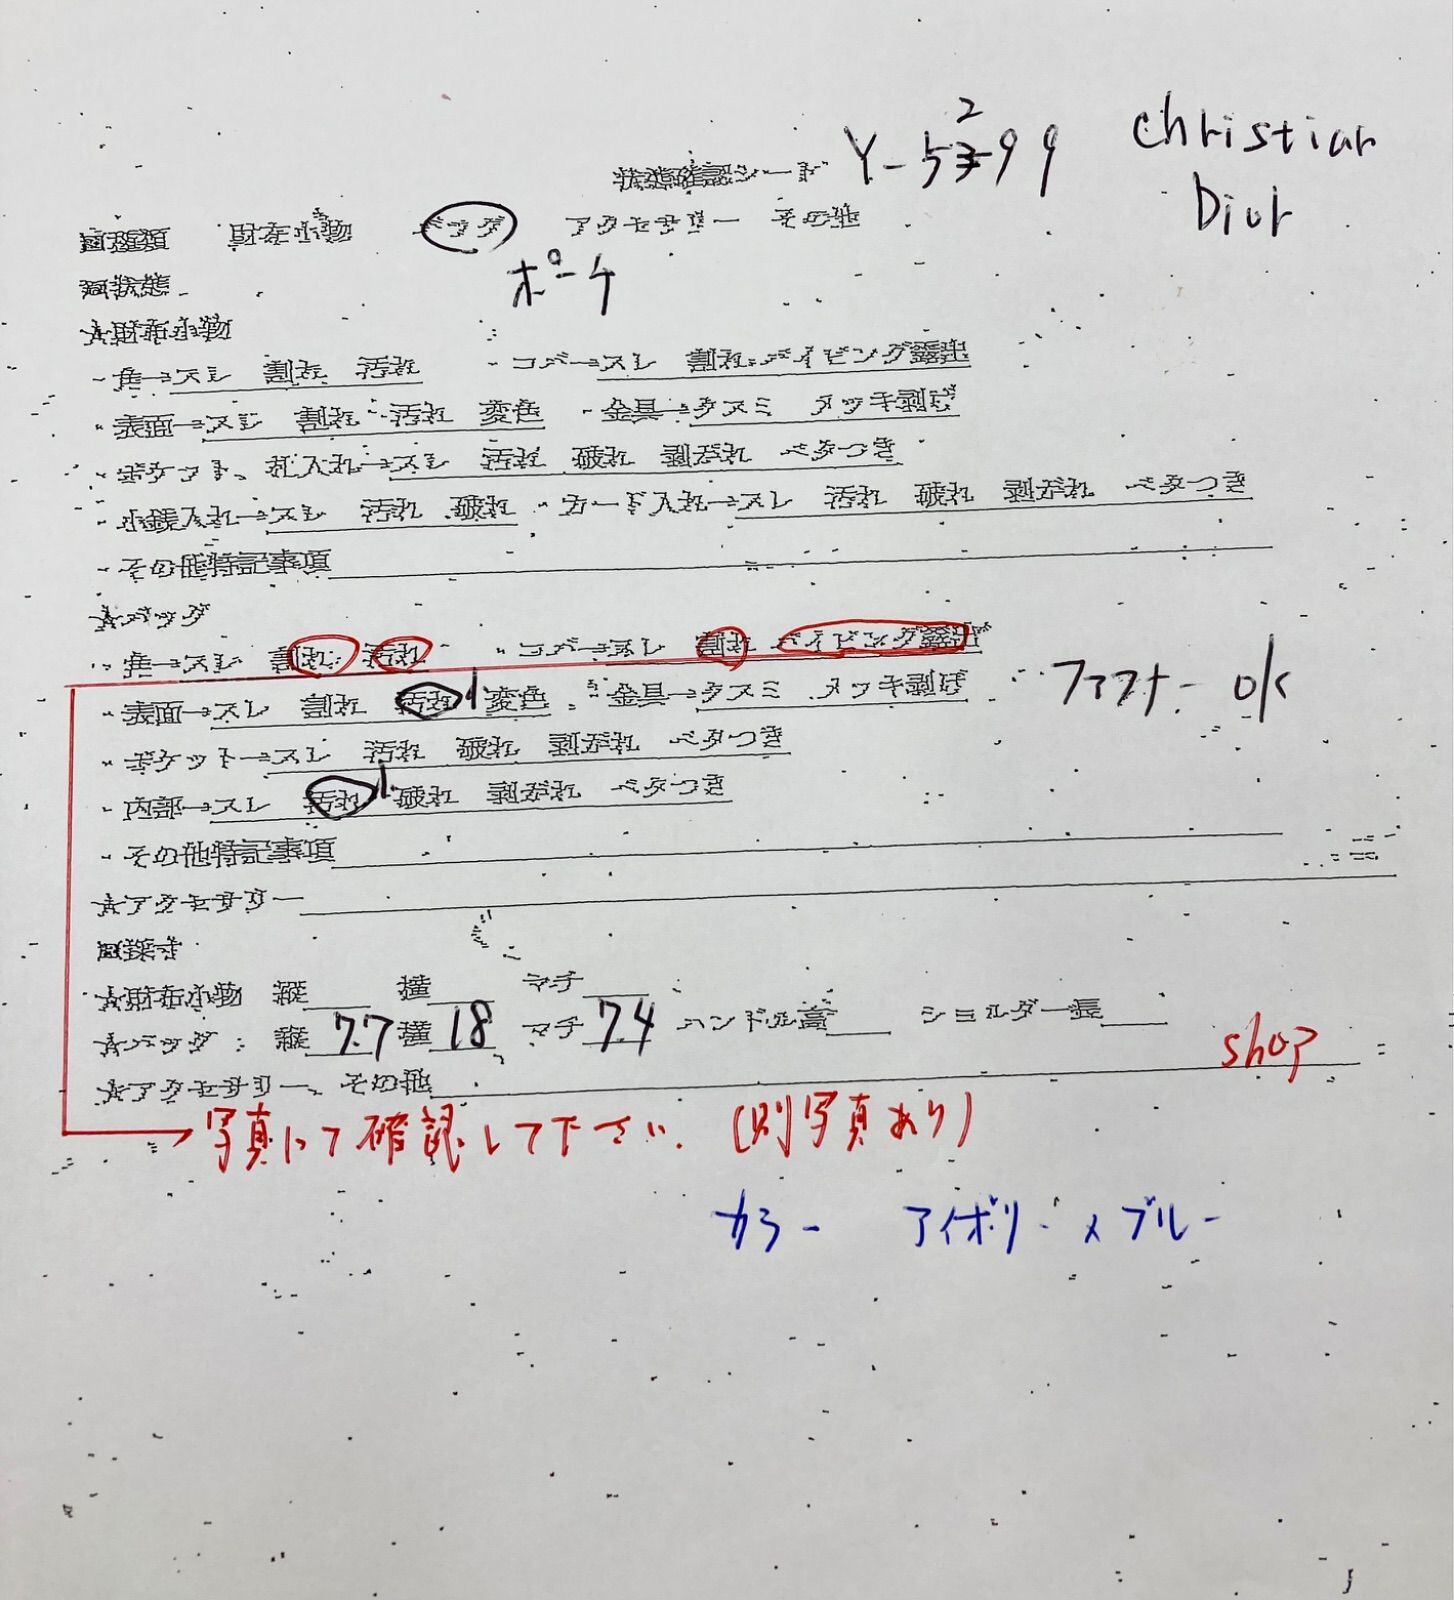 状態確認シート Y-5299 christian
Dior
□種類 財布小物 バッグ アクセサリー その他
ポーチ
□状態
★財布小物
・角→スレ 割れ 汚れ ・コバ→スレ 割れ パイピング露出
・表面→スレ 割れ 汚れ 変色 ・金具→クスミ メッキ剥げ
・ポケット、札入れ→スレ 汚れ 破れ 剥がれ ベタつき
・小銭入れ→スレ 汚れ 破れ ・カード入れ→スレ 汚れ 破れ 剥がれ ベタつき
・その他特記事項
★バッグ
・角→スレ 割れ 汚れ ・コバ→スレ 割れ パイピング露出
・表面→スレ 割れ 汚れ 変色 ・金具→クスミ メッキ剥げ ファスナー ok
・ポケット→スレ 汚れ 破れ 剥がれ ベタつき
・内部→スレ 汚れ 破れ 剥がれ ベタつき
・その他特記事項
★アクセサリー
□採寸
★財布小物 縦 横 マチ
★バッグ : 縦 7.7 横 18 マチ 7.4 ハンドル高 ショルダー長
shop
★アクセサリー、その他
写真にて確認して下さい. (別写真あり)
カラー アイボリー×ブルー